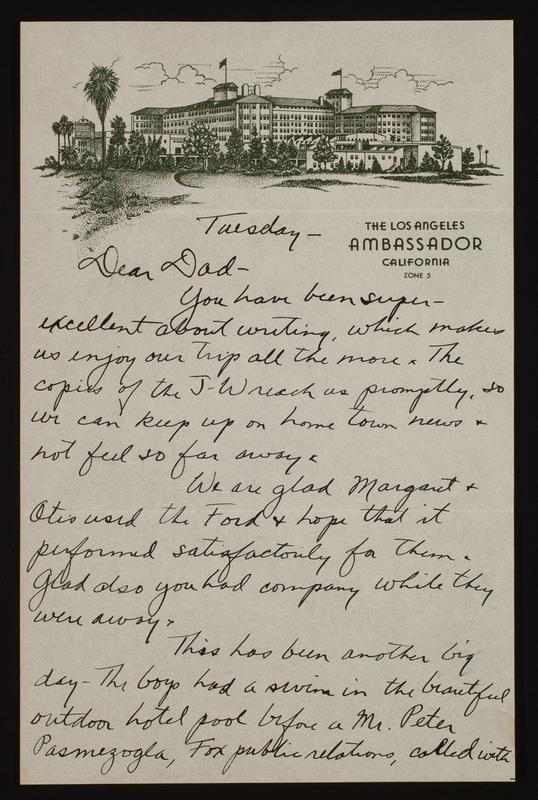 THE LOS ANGELES
AMBASSADOR
CALIFORNIA
ZONE 5
Tuesday—
Dear Dad—
You have been super-
excellent about writing, which makes
us enjoy our trip all the more. The
copies of the J-W reach us promptly, so
we can keep up on home town news &
not feel so far away.
We are glad Margaret &
Otis used the Ford & hope that it
performed satisfactorily for them.
Glad also you had company while they
were away.
This has been another big
day— The boys had a swim in the beautiful
outdoor hotel pool before a Mr. Peter
Pasmezogla, Fox public relations, called with